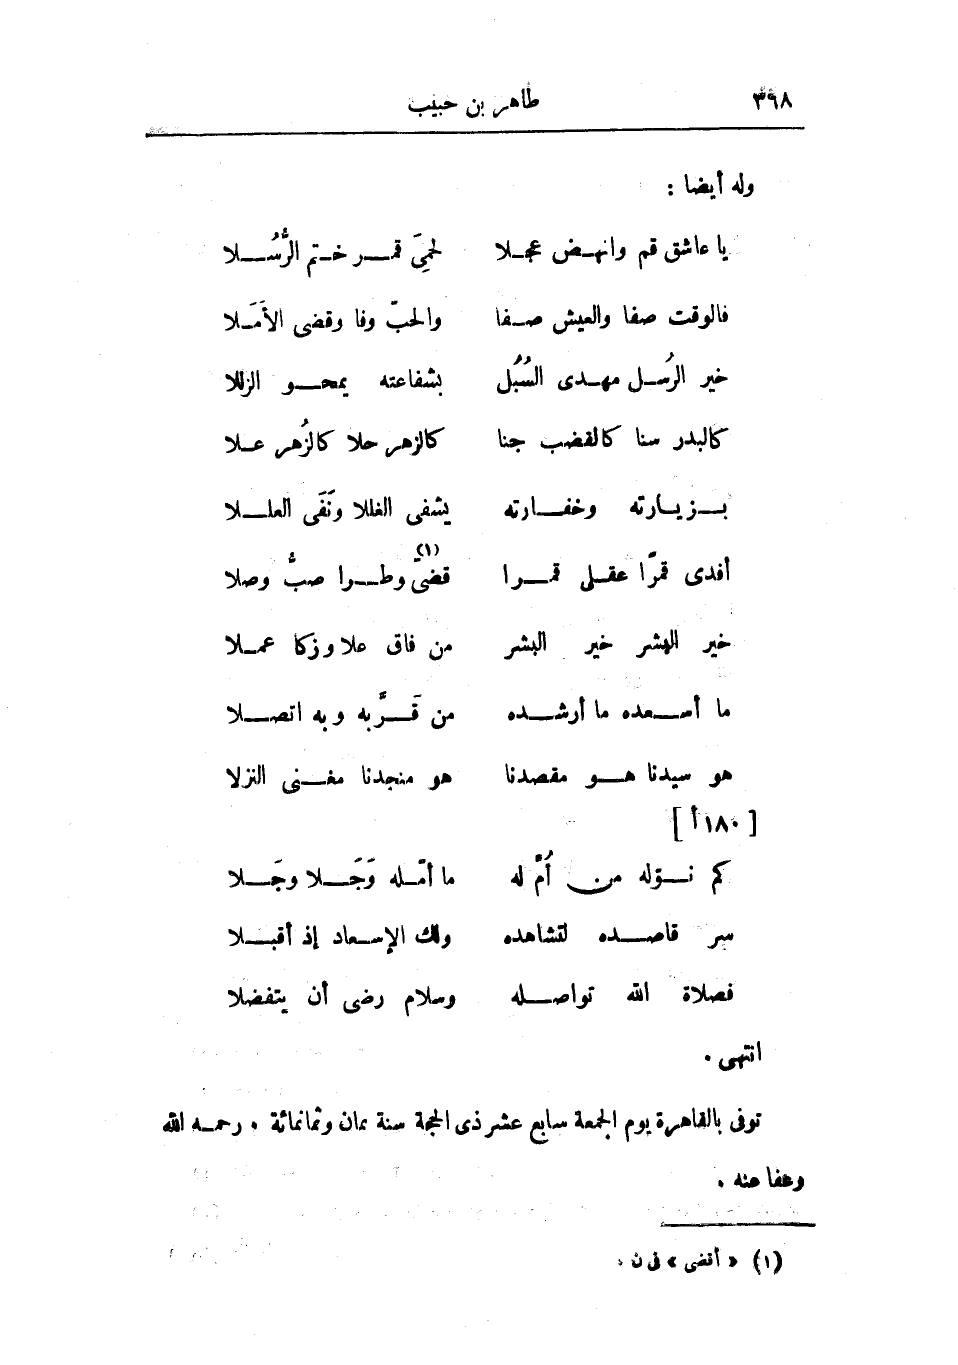 ٣٩٨ طاهر بن حبيب
وله أيضا :
يا عاشق قم وانهـض عجـلا لحمِىَ قمـر ختـم الرُّسُـلا
فالوقت صفا والعيش صـفا والحبّ وفا وقضى الأمَـلا
خير الرُسـل مهـدى السُبُل بشفاعته يمحـو الزللا
كالبدر سنا كالقضب جنا كالزهر حلا كالزُهر عـلا
بـزيـارته وخفـارته يشفى الغللا ونَفَى العلـلا
أفدى قمرًا عقـلى قمـرا قضىٰ (١) وطـرا صبُّ وصلا
خير البشر خير البشر من فاق علا وزكا عمـلا
ما أسـعده ما أرشـده من قَـرَّبه وبه اتصـلا
هو سيدنا هـو مقصدنا هو منجدنا مغـنى النزلا
[ ١٨٠ أ ]
كم نـؤله من أُمّ له ما أمّـله وَجَـلا وجَـلا
سر قاصـده لتشاهده ولك الإسـعاد إذ أقبـلا
فصلاة الله تواصـله وسلام رضى أن يتفضلا
انتهى .
توفى بالقاهرة يوم الجمعة سابع عشر ذى الحجة سنة ثمان وثمانمائة . رحمـه الله
وعفا عنه .
(١) « أقضى » فى ن .